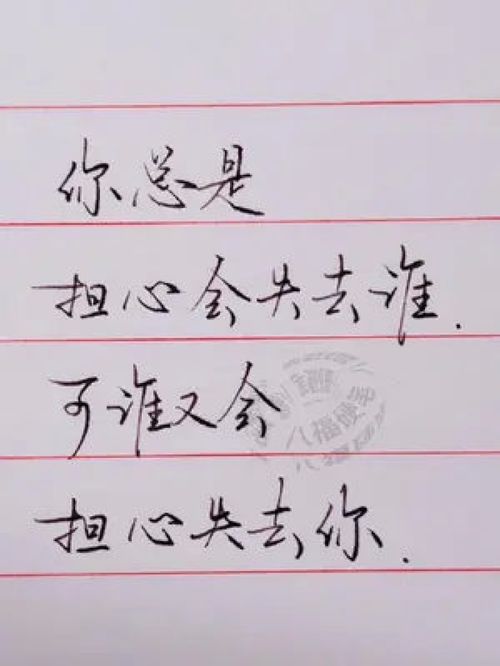 你总是
担心会失去谁.
可谁又会
八福硬笔
担心失去你.